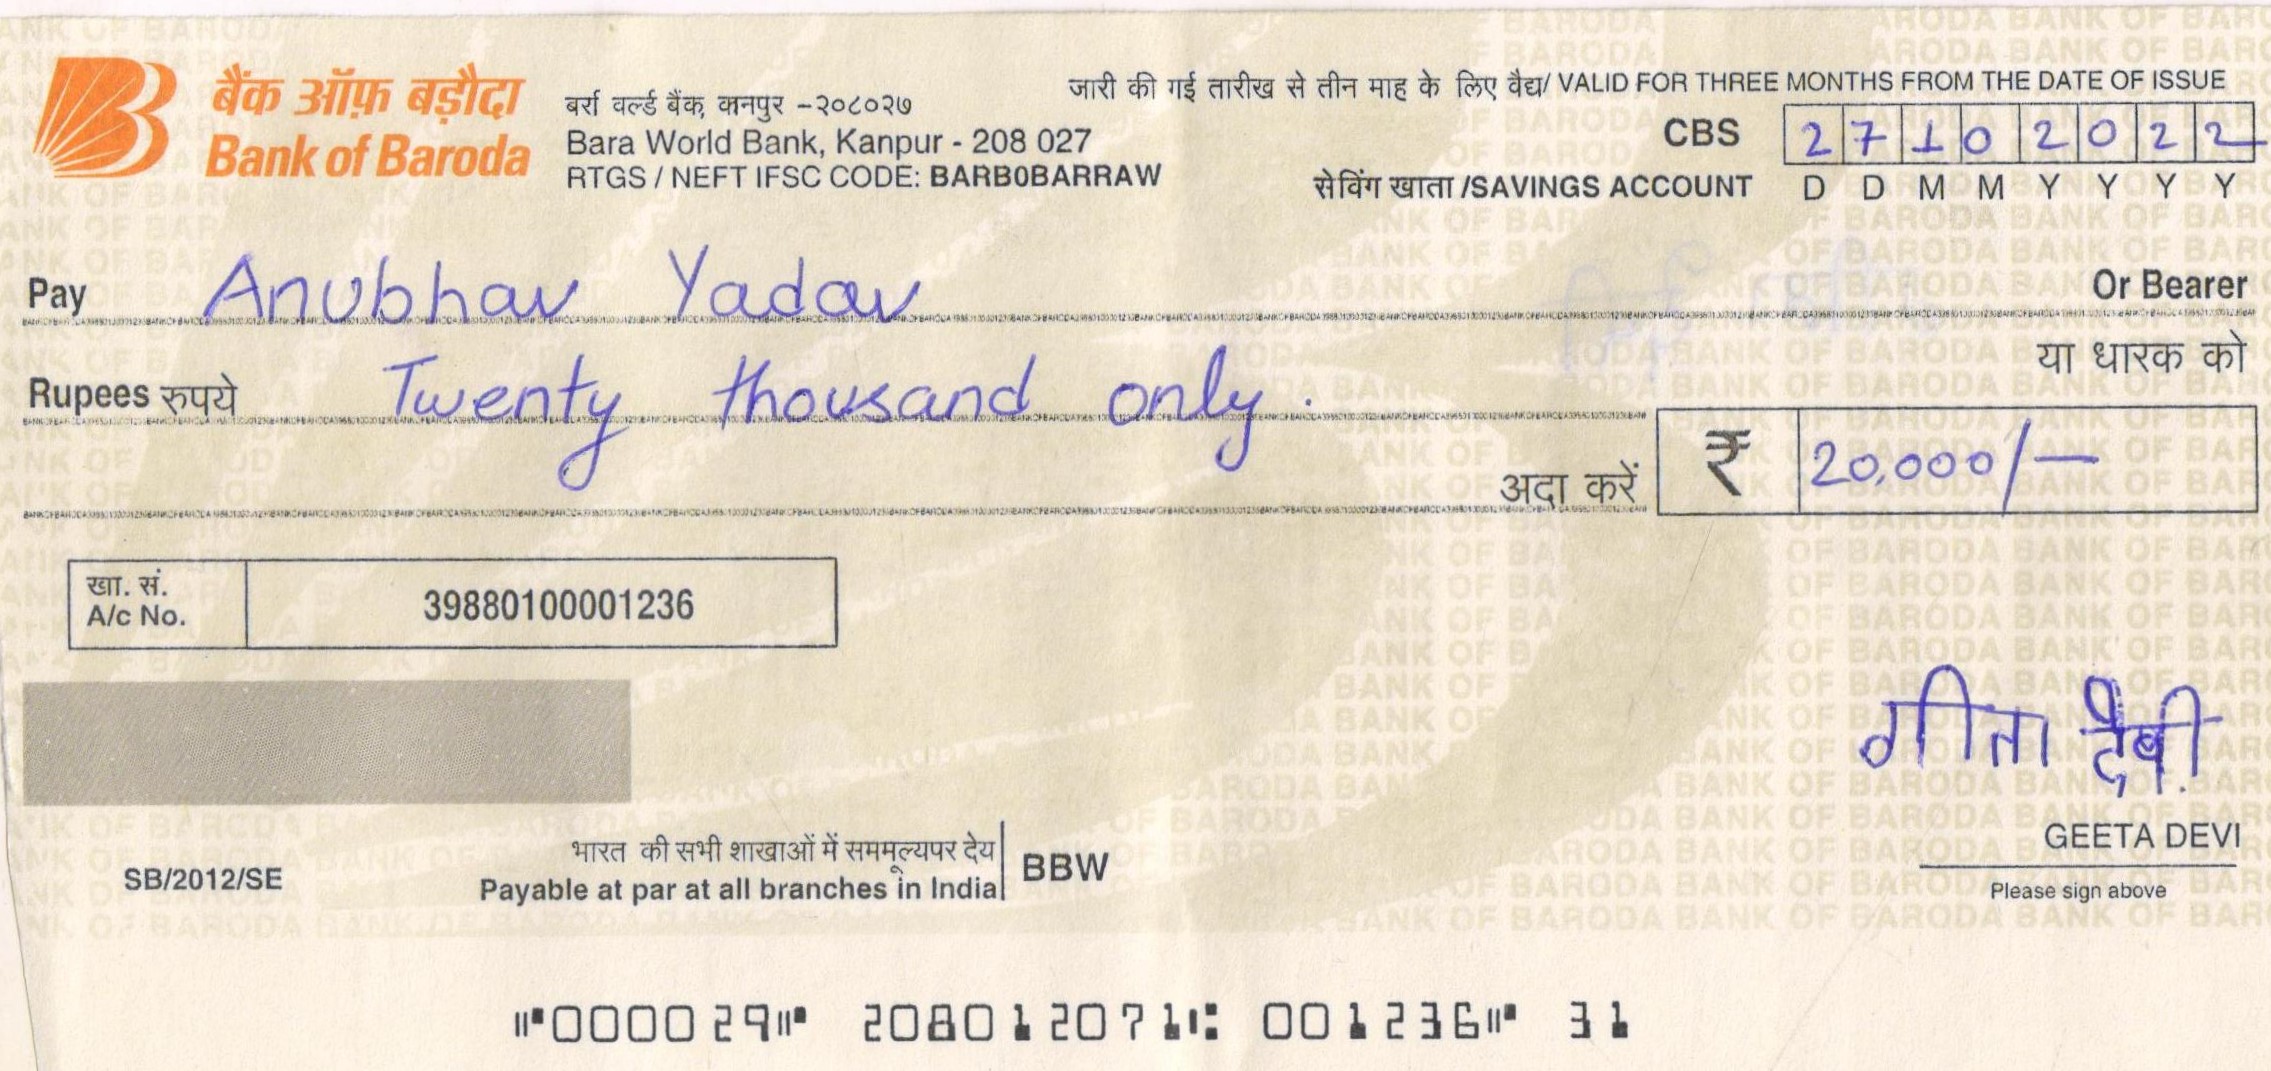 बैंक ऑफ़ बड़ौदा
Bank of Baroda
बर्रा वर्ल्ड बैंक, कानपुर -२०८०२७
Bara World Bank, Kanpur - 208 027
RTGS / NEFT IFSC CODE: BARB0BARRAW
जारी की गई तारीख से तीन माह के लिए वैद्य/ VALID FOR THREE MONTHS FROM THE DATE OF ISSUE
CBS 2 7 1 0 2 0 2 2
सेविंग खाता /SAVINGS ACCOUNT D D M M Y Y Y Y
Pay Anubhav Yadav Or Bearer
या धारक को
Rupees रुपये Twenty thousand only.
अदा करें ₹ 20,000/—
खा. सं.
A/c No. 39880100001236
गीता देवी
GEETA DEVI
Please sign above
SB/2012/SE
भारत की सभी शाखाओं में सममूल्यपर देय
Payable at par at all branches in India
BBW
⑈000029⑈ 208012071⑆ 001236⑈ 31